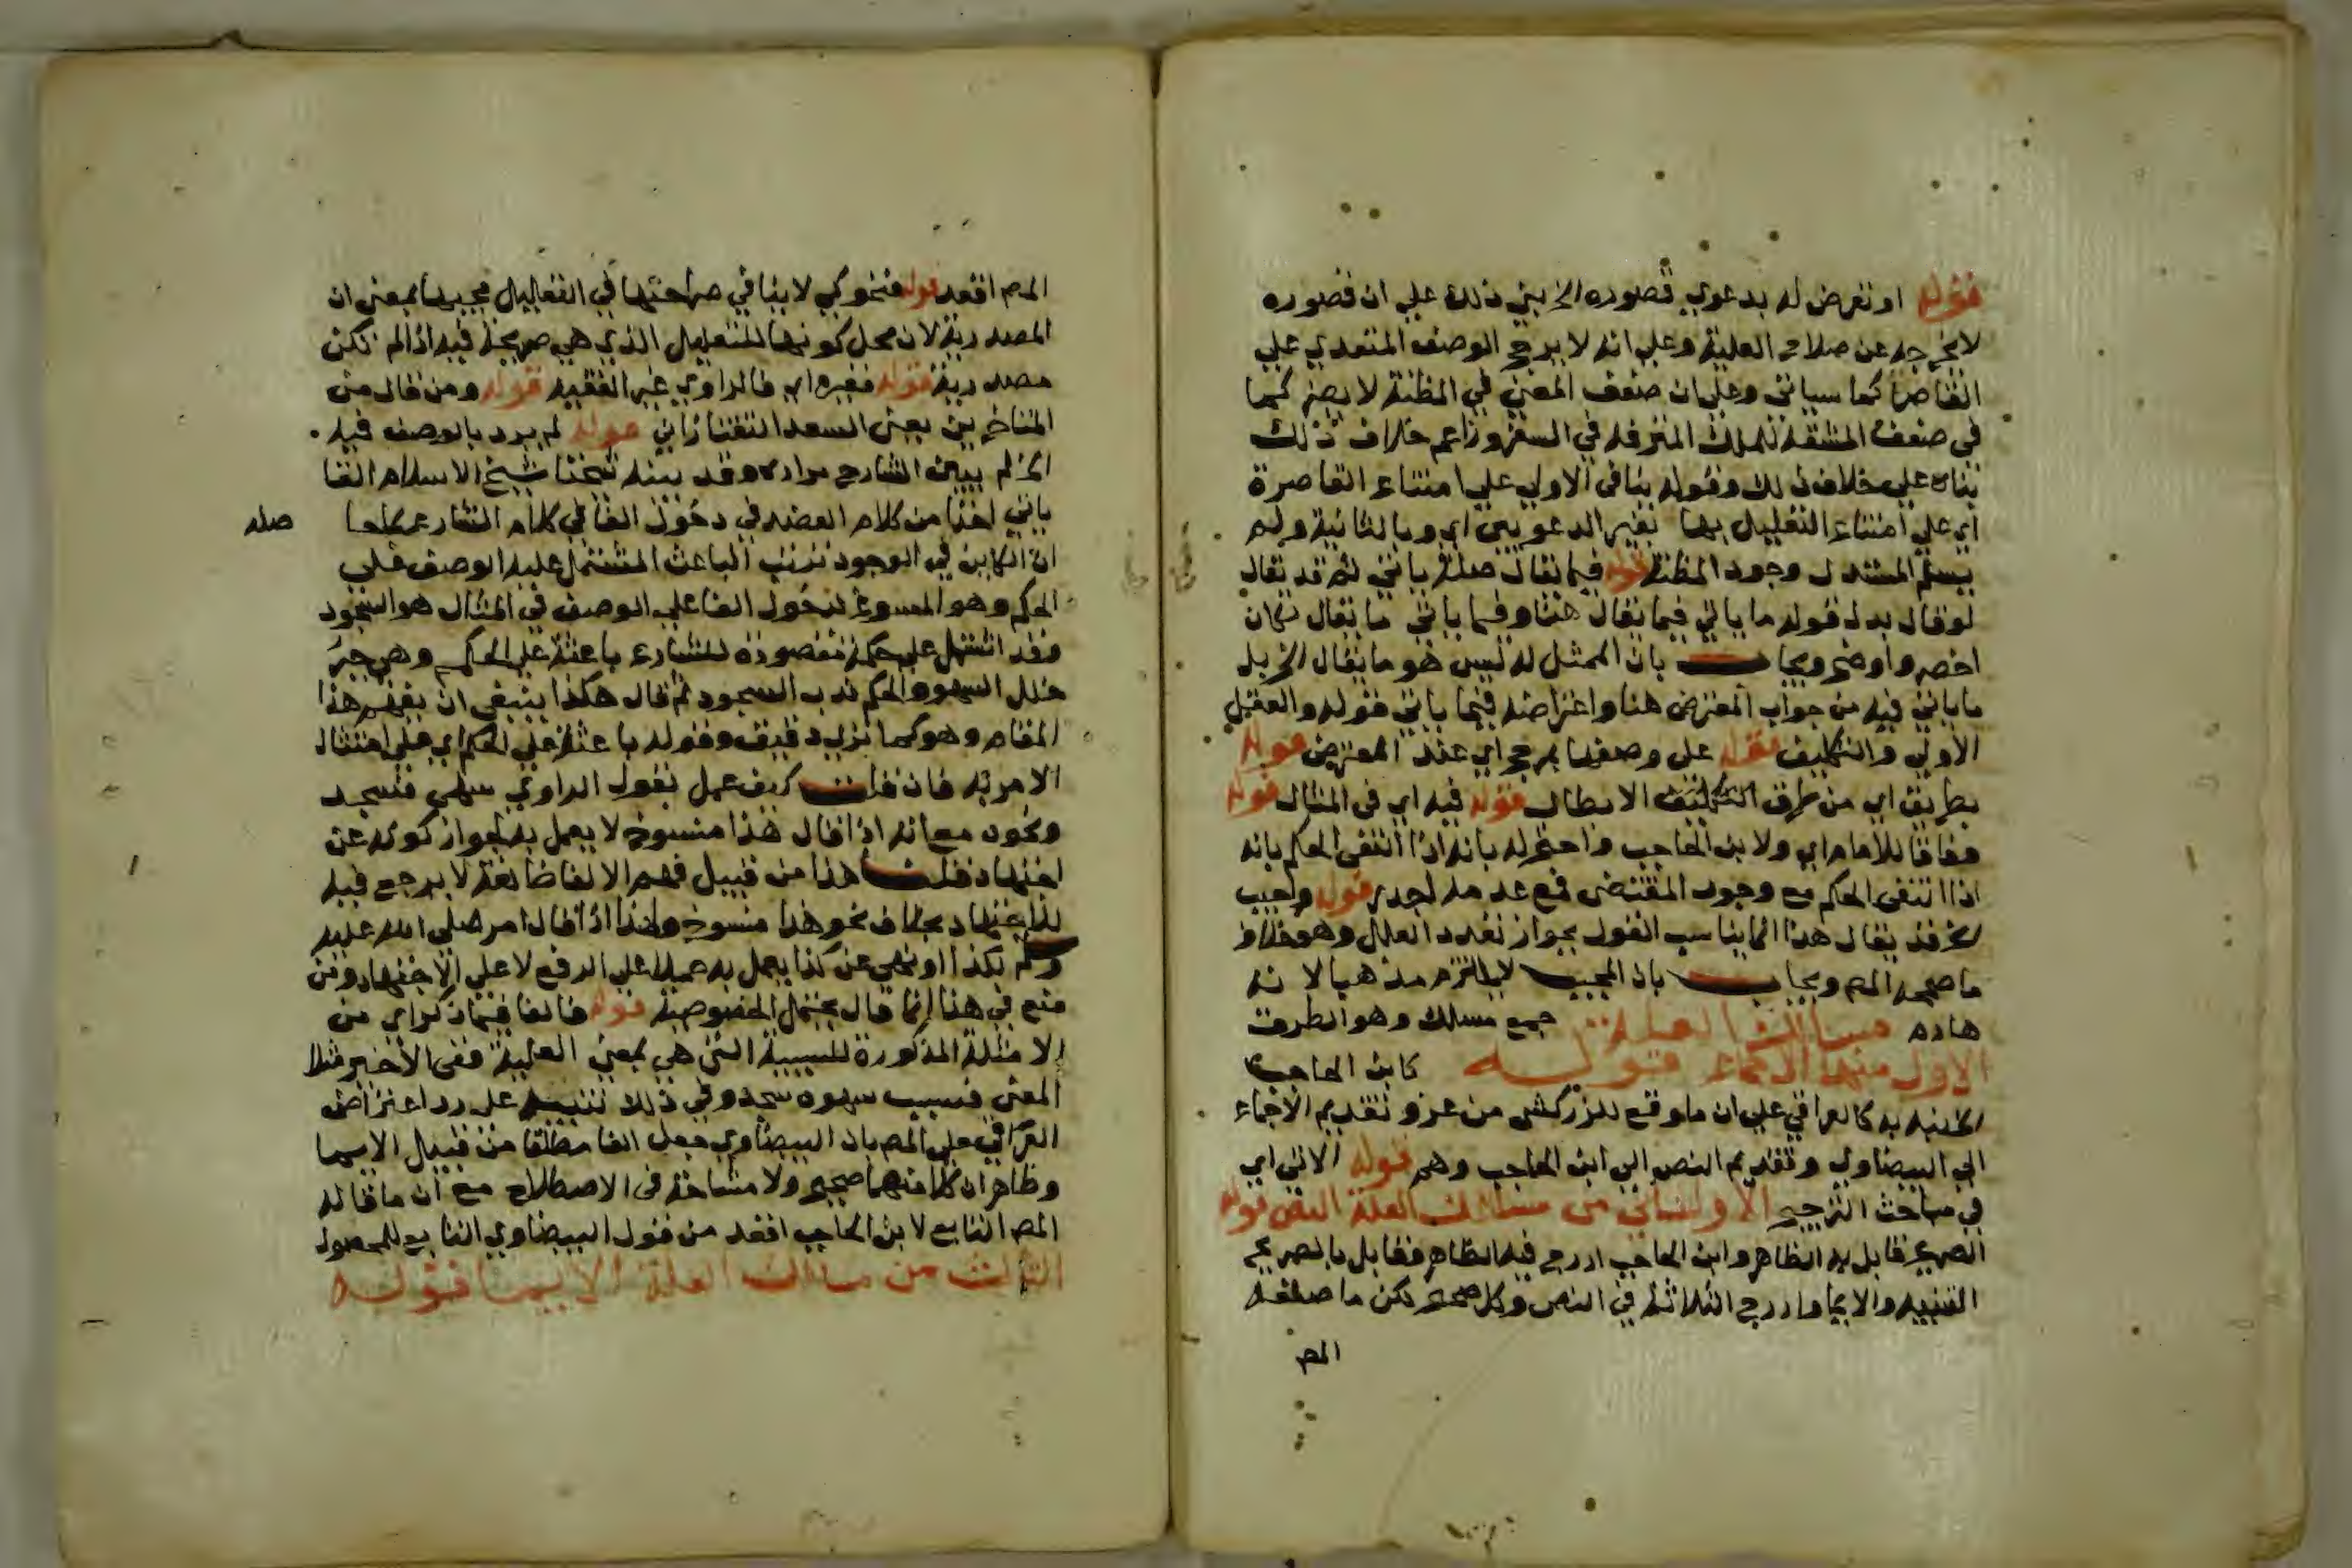 قوله او تعرض له بدعوي قصوره الخ بني ذلك علي ان قصوره
لا يخرجه عن صلاح العلية وعلي انه لا يرجح الوصف المتعدي علي
القاصر كما سياتي وعلي ان ضعف المعني في المظنة لا يضر كما
في ضعف المشقة للملك المترفه في السفر وزاعم خلاف ذلك
بناه علي خلاف ذلك وقوله بنافي الاولي علي امتناع القاصرة
اي علي امتناع التعليل بها بغير الدعويين اي وبالثانية ولم
يسلم المستدل وجود المظنة قوله فيما يقال صلة ياتي ثم قد يقال
لو قال بدل قوله ما ياتي فيما يقال هنا وفيما ياتي ما يقال لكان
اخصر واوضح ويجاب بان الممثل له ليس هو ما يقال الخ بل
ما ياتي فيه من جواب المعترض هنا واعتراضه فيما ياتي فقوله والعقيل
الاولي والتكليف قوله علي وصفها بمرجح اي عند المعترض قوله
بطريق اي من طرق الابطال قوله فيه اي في المثال قوله
وفاقا للامام اي ولابن الحاجب واحتج له بانه اذا انتفي الحكم بانه
اذا انتفي الحكم مع وجود المقتضي فمع عدمه اجدر قوله واجيب
الخ قد يقال هذا انما يناسب القول بجواز تعدد العلل وهو خلاف
ما صححه المص ويجاب بان المجيب لا يلتزم مذهبا لانه
هادم مسالك العلة جمع مسلك وهو الطريق
الاول منها الاجماع قوله كابن الحاجب
الخ نبه به كالعراقي علي ان ما وقع للزركشي من عزو تقديم الاجماع
الي البيضاوي وتقديم النص الي ابن الحاجب وهم قوله الاتي اي
في مباحث الترجيح الثاني من مسالك العلة النص قوله
الصريح قابل به الظاهر وابن الحاجب ادرج فيه الظاهر فقابل بالصريح
التنبيه والايما وادرج الثلاثة في النص وكل صحيح لكن ما صنعه
المص
المص اقعد قوله فنحو كي لا ينافي صراحتها في التعليل مجيها بمعني ان
المصدرية لان محل كونها للتعليل الذي هي صريحة فيه اذا لم تكن
مصدرية قوله فغيره اي فالراوي غير الفقيه قوله ومن قال من
المتاخرين يعني السعد التفتازاني قوله لم يرد بالوصف فيه
الخ لم يبين الشارح مراده وقد بينه شيخنا شيخ الاسلام القا
ياتي اخذا من كلام العضد في دخول الفا في كلام الشارع
صله
ان الكاين في الوجود ترتب الباعث المشتمل عليه الوصف علي
الحكم وهو المسوغ لدخول الفا علي الوصف في المثال هو السجود
وقد اشتمل علي حكمة مقصودة للشارع باعثة علي الحكم وهي جبر
خلل السهو والحكم ندب السجود ثم قال هكذا ينبغي ان يفهم هذا
المقام وهو كما تري دقيق وقوله باعثة علي الحكم اي علي امتثال
الامر به فان قلت كيف عمل بقول الراوي سهي فسجد
ونحوه مع انه اذا قال هذا منسوخ لا يعمل به لجواز كونه عن
اجتهاد قلت هذا من قبيل فهم الالفاظ لغة لا يرجع فيه
للاجتهاد بخلاف نحو هذا منسوخ ولهذا اذا قال امر صلي الله عليه
وسلم بكذا او نهي عن كذا يعمل به حملا علي الرفع لا علي الاجتهاد ومن
منع في هذا انما قال يحتمل الخصوصية قوله فالفا فيما ذكر اي من
الامثلة المذكورة للسببية التي هي بمعني العلية ففي الاخير مثلا
المعني فبسبب سهوه سجد وفي ذلك تنبيه علي رد اعتراض
العراقي علي المص بان البيضاوي جعل الفا مطلقا من قبيل الايما
وظاهر ان كلا منهما صحيح ولا مشاحة في الاصطلاح مع ان ما قاله
المص التابع لابن الحاجب اقعد من قول البيضاوي التابع للمحصول
الثالث من مسالك العلة الايما قوله